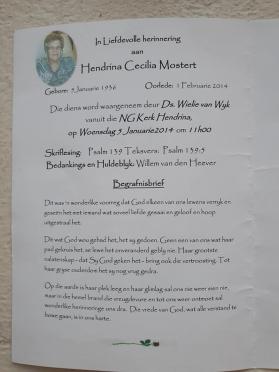 In Liefdevolle herinnering
aan
Hendrina Cecilia Mostert
Gebore: 5 Januarie 1936 Oorlede: 1 Februarie 2014
Die diens word waargeneem deur Ds. Wielie van Wyk
vanuit die NG Kerk Hendrina,
op Woensdag 5 Januarie 2014 om 11h00
Skriflesing: Psalm 139 Teksvers: Psalm 139:5
Bedankings en Huldeblyk: Willem van den Heever
Begrafnisbrief
Dit was 'n wonderlike voorreg dat God elkeen van ons lewens verryk en
geseën het met iemand wat soveel liefde gesaai en geloof en hoop
uitgestraal het.
Dit wat God wou gehad het, het sy gedoen. Geen een van ons wat haar
pad gekruis het, se lewe het onveranderd gebly nie. Haar grootste
nalatenskap - dat Sy God geken het - bring ook die vertroosting. Tot
haar gryse ouderdom het sy nog vrug gedra.
Op die aarde is haar plek leeg en haar glimlag sal ons nie weer sien nie,
maar in die hemel brand die vreugdevure en tot ons weer ontmoet sal
wonderlike herinneringe ons dra. Die vrede van God, wat alle verstand te
bowe gaan, is in ons harte.